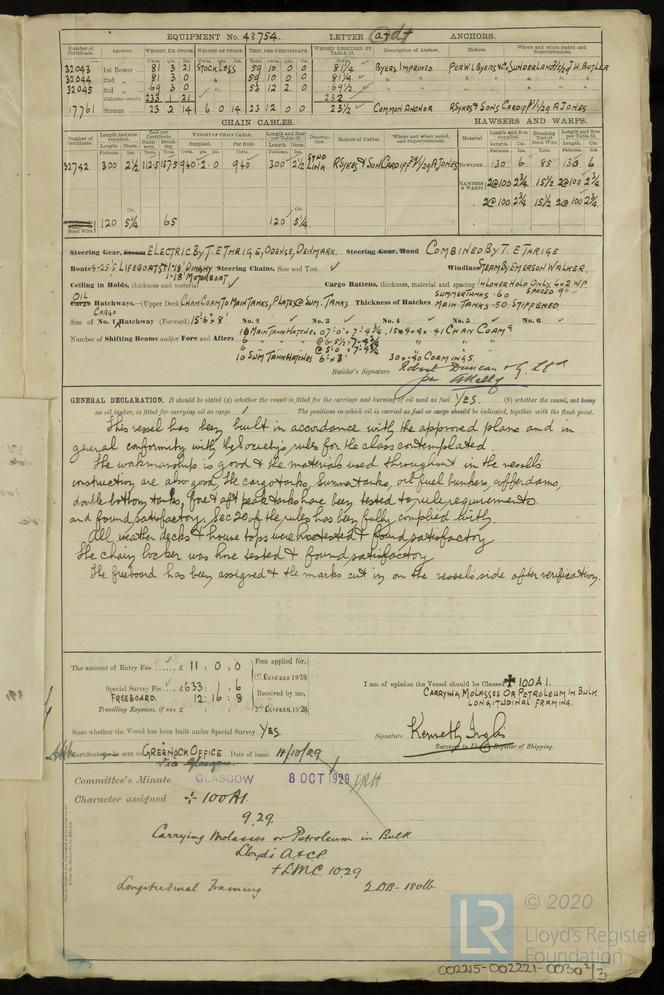 EQUIPMENT No. 48754. LETTER a† ANCHORS.
Number of Certificate. Anchors. WEIGHT, EX. STOCK. WEIGHT OF STOCK. TEST, PER CERTIFICATE. WEIGHT REQUIRED BY TABLE 31. Description of Anchor. Makers. Where and when tested and Superintendent.
32043 1st Bower 81 3 21 STOCKLESS 59 10 0 0 81¼ BYERS IMPROVED PER W.L BYERS & Co SUNDERLAND J.H. BUTLER
32044 2nd " 81 3 0 " 59 10 0 0 81¼ " "
32045 3rd " 69 3 0 " 53 12 2 0 69½ " "
Collective weight 233 1 21 232
17761 Stream 23 2 14 6 0 14 23 12 0 0 23½ COMMON ANCHOR R SYKES & SONS CARDIFF A JONES
CHAIN CABLES. HAWSERS AND WARPS.
32742 300 2½ 112.5 157.5 940.2.0 940 300 2½ STUD LINK R SYKES & SON CARDIFF A JONES TOWLINE 130 6 85 130 6
HAWSERS & WARPS 2@100 2¾ 15½ 2@100 2¾
2@100 2¾ 15½ 2@100 2¾
120 5¼ 65 120 5¼
Steering Gear, Steam ELECTRIC BY T. E THRIGE, ODENSE, DENMARK. Steering Gear, Hand COMBINED BY T. E THRIGE
Boats 4-25'5 LIFEBOATS 1-18' DINGHY Steering Chains, Size and Test ✓ Windlass STEAM BY EMERSON WALKER.
1-18' MOTORBOAT
Ceiling in Holds, thickness and material ✓ Cargo Battens, thickness, material and spacing IN LOWER HOLD ONLY, 6x2 W.P. SPACED 9"
OIL Cargo Hatchways.—(Upper Deck) CHAN COAM TO MAIN TANKS, PLATES @ SUM. TANKS Thickness of Hatches SUMMER TANKS .60
MAIN TANKS .50 STIFFENED.
Size of No. 1 CARGO Hatchway (Forward) 15'.6"x 8' No. 2 ✓ No. 3 ✓ No. 4 ✓ No. 5 ✓ No. 6 ✓
Number of Shifting Beams and/or Fore and Afters
10 SUM TANK HATCHES 6'x3' 30x.40 COAMINGS.
Builder's Signature Robert Duncan & Co Ltd
per
GENERAL DECLARATION. It should be stated (a) whether the vessel is fitted for the carriage and burning of oil used as fuel. YES. (b) whether the vessel, not being
an oil tanker, is fitted for carrying oil as cargo ✓ The positions in which oil is carried as fuel or cargo should be indicated, together with the flash point.
This vessel has been built in accordance with the approved plans and in
general conformity with the Society's rules for the class contemplated.
The workmanship is good & the materials used throughout in the vessels
construction are also good, the cargo tanks, summer tanks, oil fuel bunkers, cofferdams,
double bottom tanks, fore & aft peak tanks have been tested to rule requirements
and found satisfactory. Sec 20 of the rules has been fully complied with.
All weather decks & house tops were hose tested & found satisfactory
The chain locker was hose tested & found satisfactory
The freeboard has been assigned & the marks cut in on the vessel's side after verification.
The amount of Entry Fee ..... £ 11 : 0 : 0 Fees applied for,
1st OCTOBER 1929
Special Survey Fee £ 633 : 1 : 6 Received by me,
FREEBOARD. 12 : 16 : 8
Travelling Expenses, if any £ 3rd OCTOBER 1929
I am of opinion the Vessel should be Classed ✠ 100A1.
CARRYING MOLASSES OR PETROLEUM IN BULK
LONGITUDINAL FRAMING.
State whether the Vessel has been built under Special Survey YES
Signature Kenneth Inglis
Surveyor to Lloyd's Register of Shipping.
Certificate to be sent to GREENOCK OFFICE Date of issue 11/10/29
via Glasgow
Committee's Minute GLASGOW 8 OCT 1929
Character assigned ✠ 100A1
9.29
Carrying Molasses or Petroleum in Bulk
Lloyd's A & CP
+ LMC 10.29
Longitudinal Framing 2 DB - 180 lb
© 2020
LR
Lloyd's Register
Foundation
002215-002221-0030 2/3